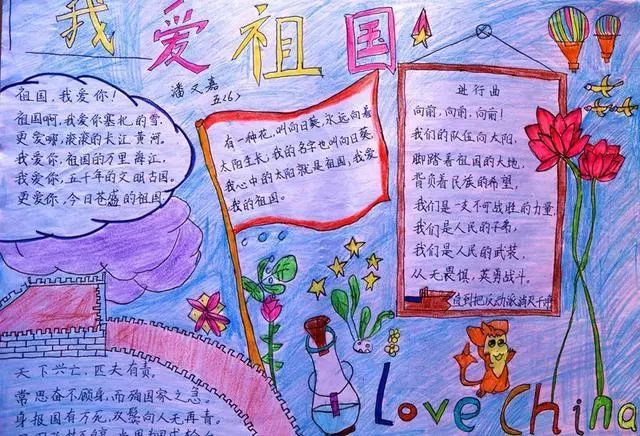 我爱祖国
潘又嘉
五(6)
祖国,我爱你!
祖国啊,我爱你塞北的雪.
更爱哪,滚滚的长江黄河。
我爱你,祖国的万里薛江,
我爱你,五千年的文明古国。
更爱你,今日苍盛的祖国.
有一种花,叫向日葵,永远向着
太阳生长,我的名字也叫向日葵.
我心中的太阳就是祖国,我爱
我的祖国。
进行曲
向前,向前,向前!
我们的队伍向太阳,
脚踏着祖国的大地,
背负着民族的希望,
我们是一支不可战胜的力量,
我们是人民的子弟,
我们是人民的武装,
从无畏惧,英勇战斗。
直到把反动派消灭干净
天下兴亡、匹夫有责,
常思奋不顾身,而殉国家之急。
身报国有万死,双鬓向人无再青。
Love China